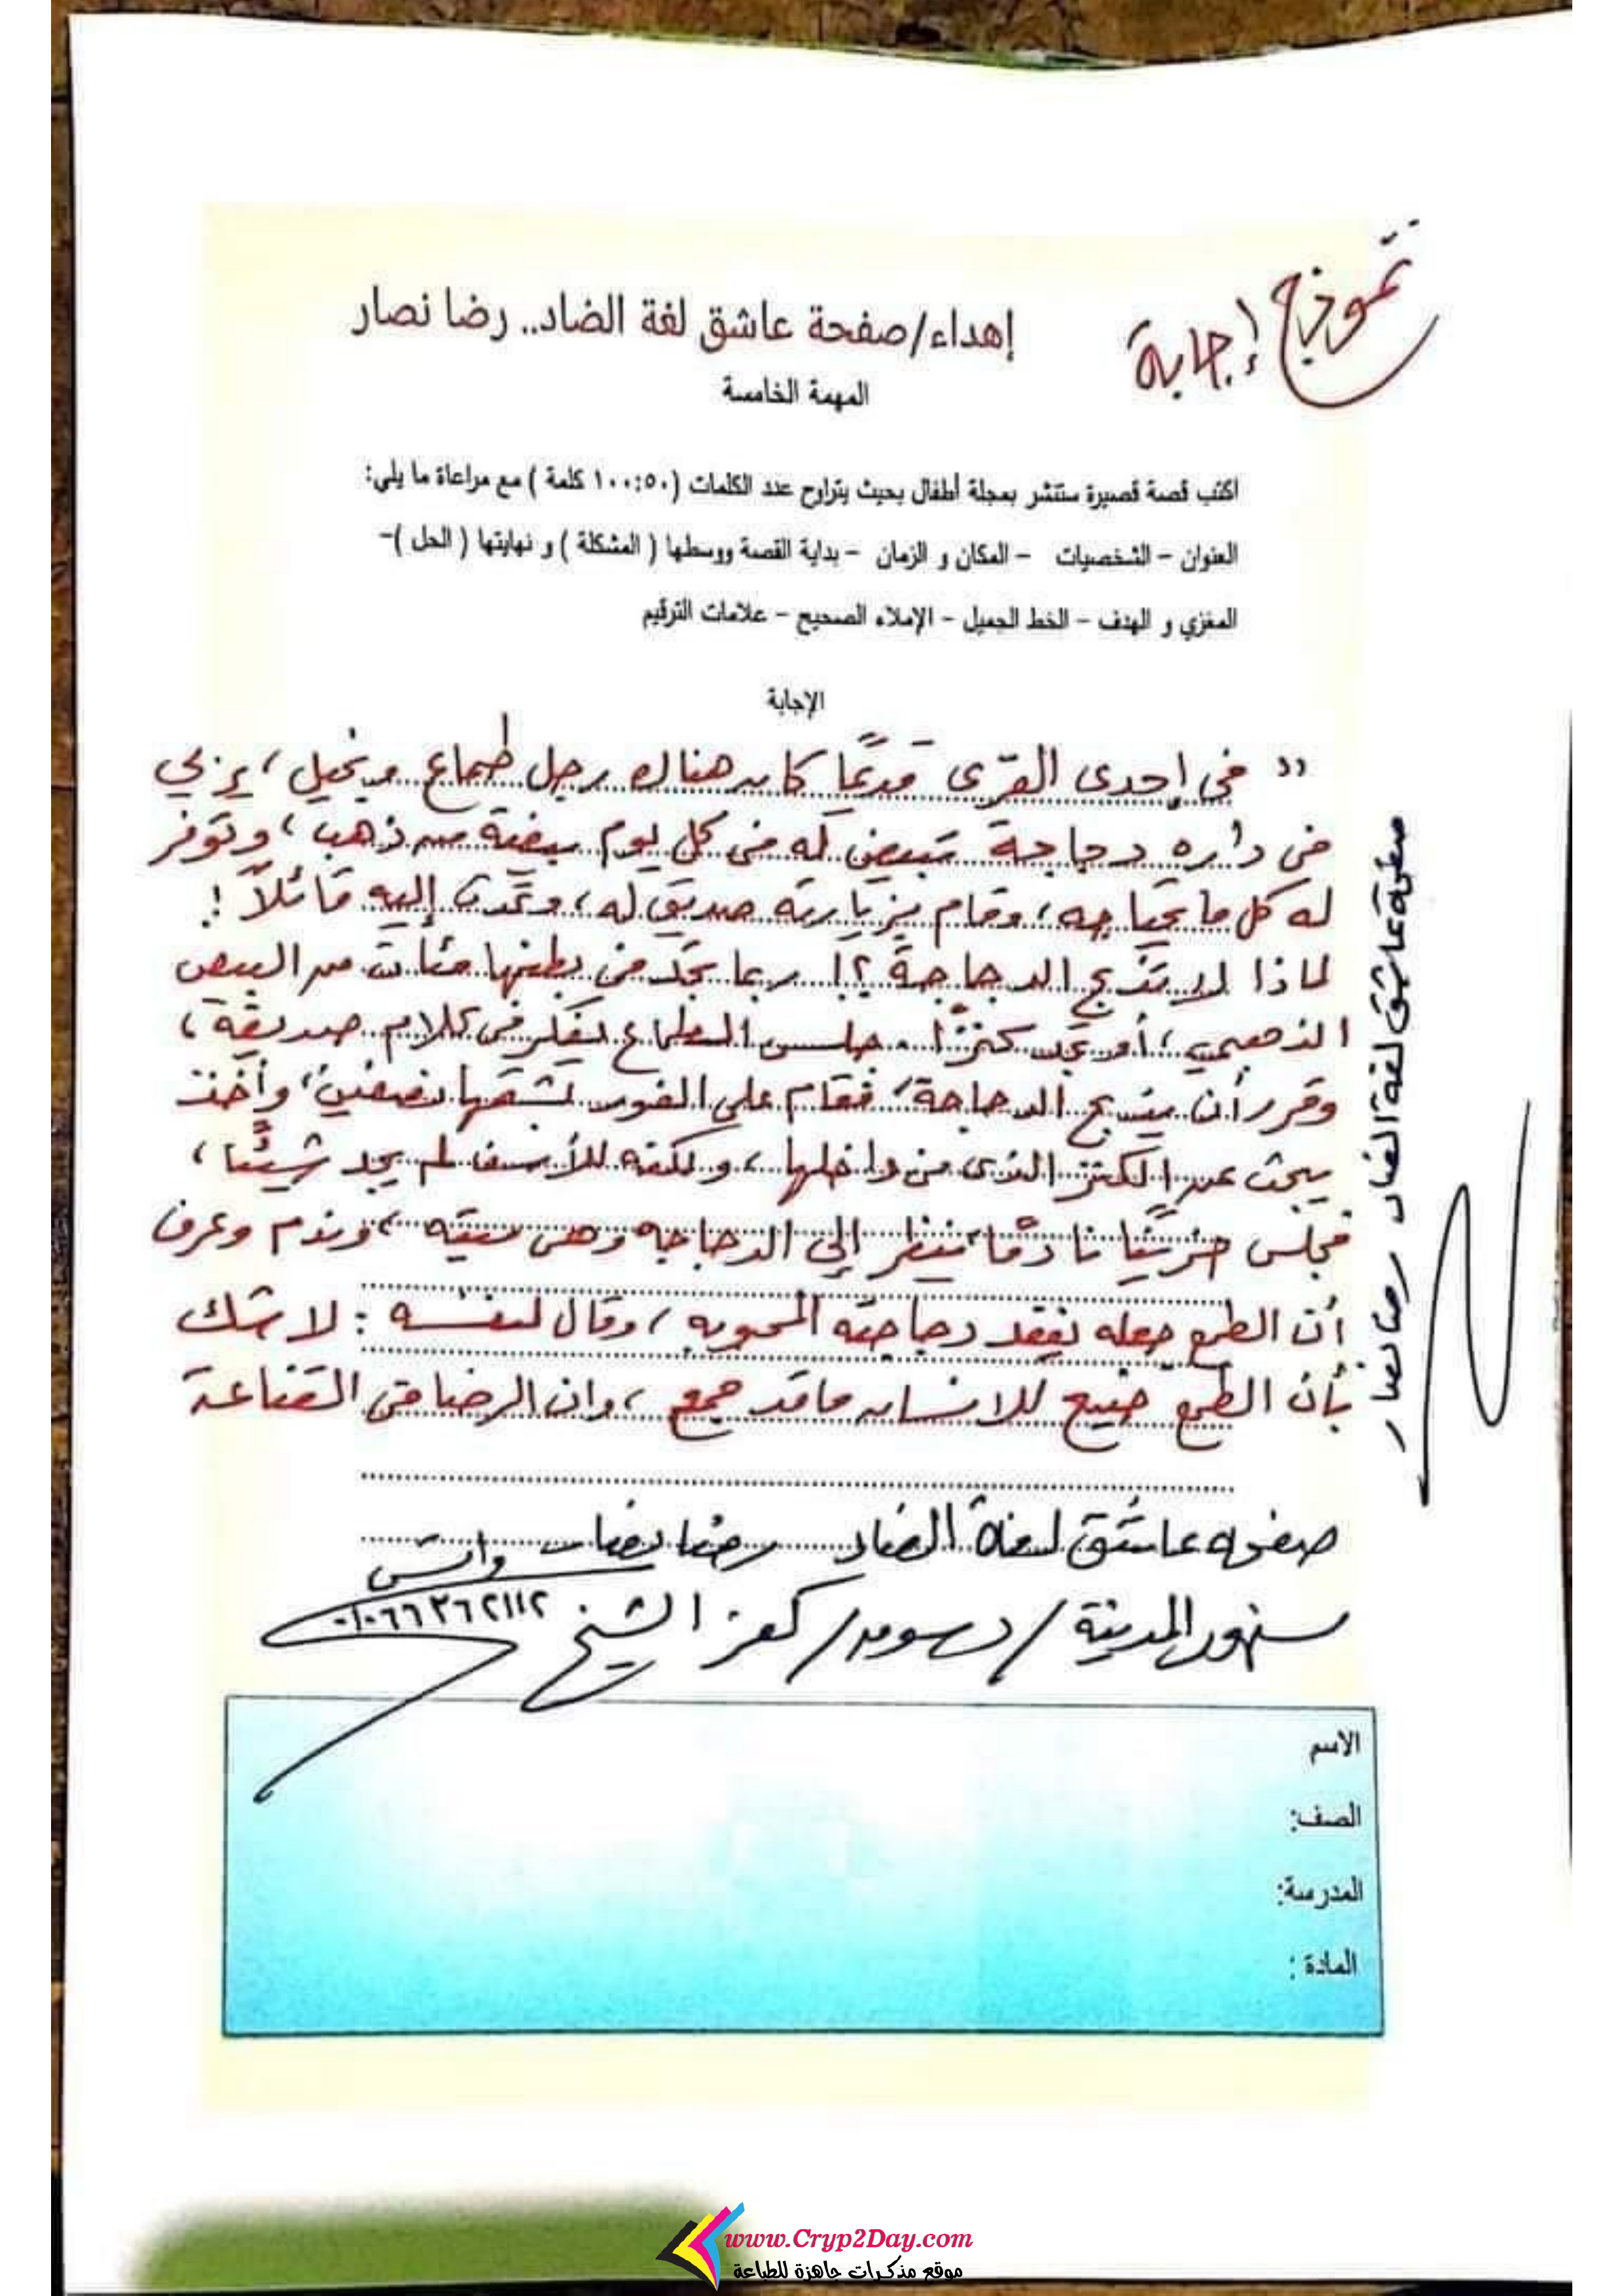 نموذج إجابة
إهداء/صفحة عاشق لغة الضاد.. رضا نصار
المهمة الخامسة
اكتب قصة قصيرة ستنشر بمجلة أطفال بحيث يتراوح عدد الكلمات (١٠٠:٥٠ كلمة ) مع مراعاة ما يلي:
العنوان – الشخصيات – المكان و الزمان – بداية القصة ووسطها ( المشكلة ) و نهايتها ( الحل )–
المغزي و الهدف – الخط الجميل – الإملاء الصحيح – علامات الترقيم
الإجابة
" في إحدى القرى قديمًا كان هناك رجل طماع وبخيل، يربي
في داره دجاجة تبيض له في كل يوم بيضة من ذهب، وتوفر
له كل ما يحتاجه، وقام بزيارته صديق له، وتحدث إليه قائلًا:
لماذا لا تذبح الدجاجة؟! ربما تجد في بطنها مئات من البيض
الذهبي، أو تجد كنزًا. جلس الطماع يفكر في كلام صديقه،
وقرر أن يذبح الدجاجة، فقام على الفور بشقها نصفين، وأخذ
يبحث عن الكنز الذي في داخلها، ولكنه للأسف لم يجد شيئًا،
فجلس حزينًا نادمًا ينظر إلى الدجاجه وهي ميته، وندم وعرف
أن الطمع جعله يفقد دجاجته المحبوبه، وقال لنفسه: لا شك
بأن الطمع ضيع للانسان ما قد جمع، وان الرضا في القناعة
صفحه عاشق لغة الضاد رضا نصار واتس
سنهور المدينة/دسوق/كفر الشيخ ٠١٠٦٦٣٦٢١١٢
صفحة عاشق لغة الضاد رضا نصار
الاسم
الصف:
المدرسة:
المادة :
www.Cryp2Day.com
موقع مذكرات جاهزة للطباعة